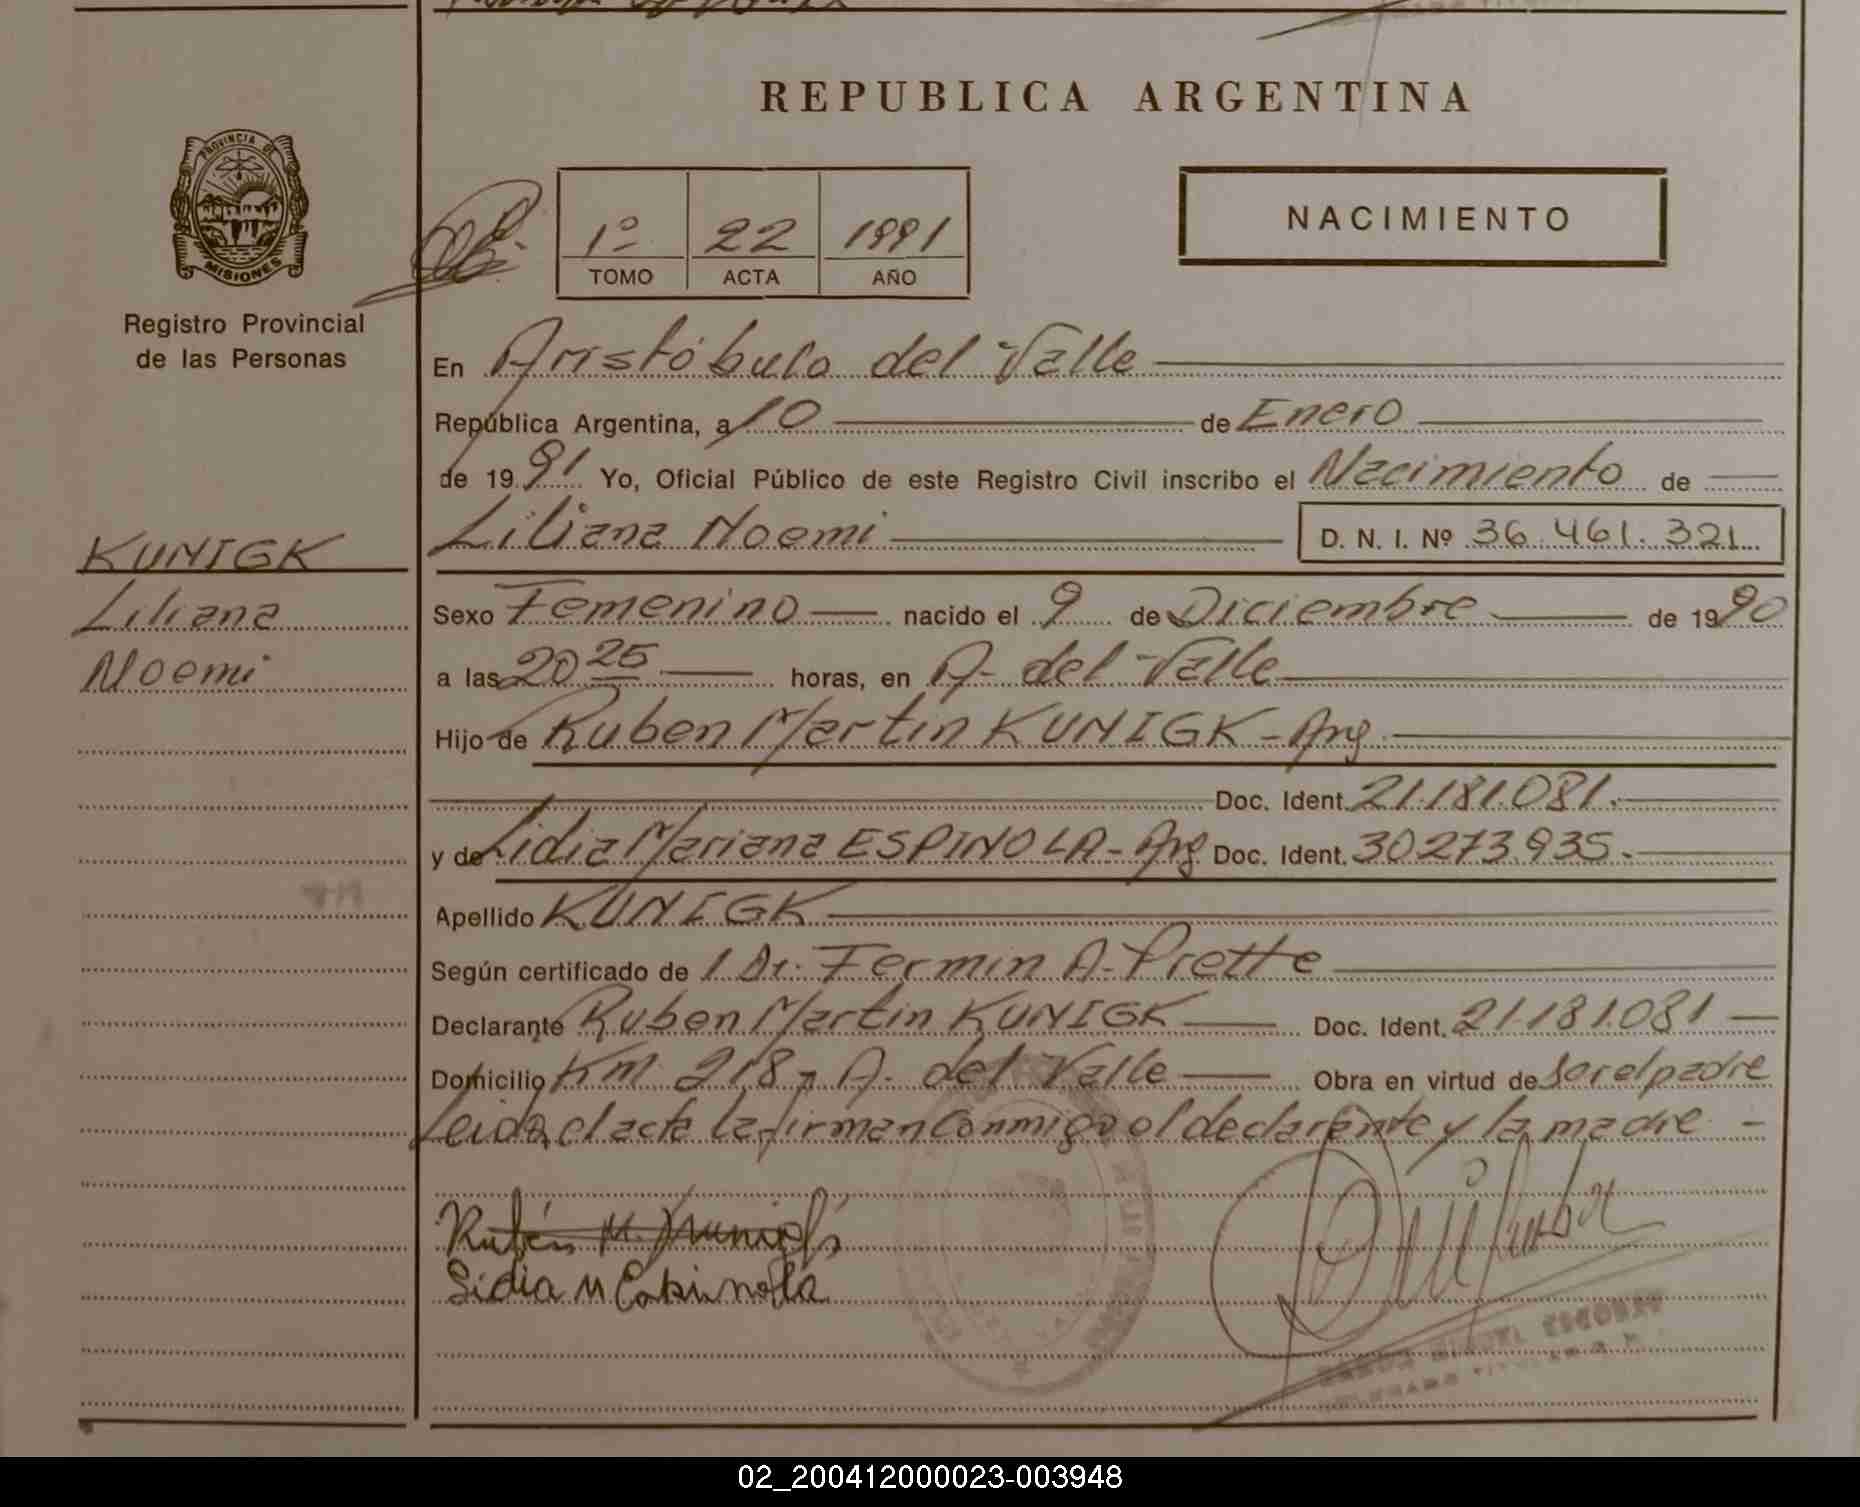 REPUBLICA ARGENTINA
PROVINCIA DE
MISIONES
Registro Provincial
de las Personas
1º 22 1991
TOMO ACTA AÑO
NACIMIENTO
En Aristóbulo del Valle
República Argentina, a 10 de Enero
de 1991 Yo, Oficial Público de este Registro Civil inscribo el Nacimiento de
Liliana Noemi D. N. I. Nº 36.461.321
KUNIGK
Liliana
Noemi
Sexo Femenino nacido el 9 de Diciembre de 1990
a las 20 25 horas, en A. del Valle
Hijo de Ruben Martin KUNIGK - Arg
Doc. Ident. 21.181.081.
y de Lidia Mariana ESPINOLA - Arg Doc. Ident. 30273.935.
Apellido KUNIGK
Según certificado de 1 Dr. Fermin A. Prette
Declarante Ruben Martin KUNIGK Doc. Ident. 21.181.081
Domicilio Km. 218 - A. del Valle Obra en virtud de ser el padre
Leida el acta la firman conmigo el declarante y la madre -
Rubén M. Kunigk
Lidia M Espinola
02_200412000023-003948